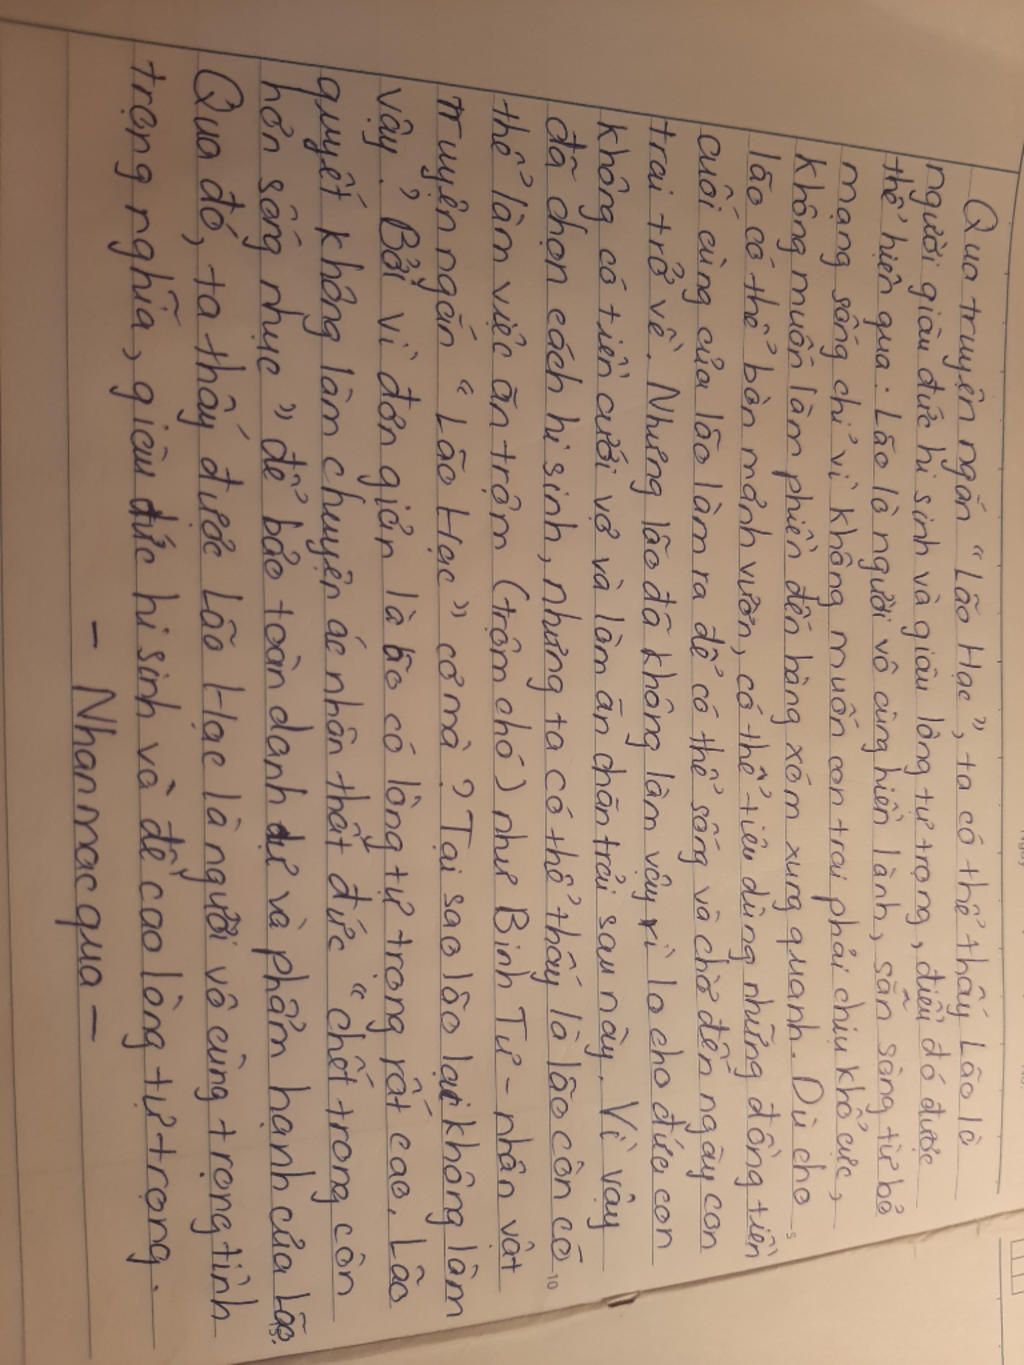 Qua truyện ngắn "Lão Hạc", ta có thể thấy Lão là
người giàu đức hi sinh và giàu lòng tự trọng, điều đó được
thể hiện qua: Lão là người vô cùng hiền lành, sẵn sàng từ bỏ
mạng sống chỉ vì không muốn con trai phải chịu khổ cực,
không muốn làm phiền đến hàng xóm xung quanh. Dù cho
lão có thể bán mảnh vườn, có thể tiêu dùng những đồng tiền
cuối cùng của lão làm ra để có thể sống và chờ đến ngày con
trai trở về. Nhưng lão đã không làm vậy vì lo cho đứa con
không có tiền cưới vợ và làm ăn chăn trải sau này. Vì vậy
đã chọn cách hi sinh, nhưng ta có thể thấy là lão còn có
thể làm việc ăn trộm (trộm chó) như Binh Tư - nhân vật
truyện ngắn "Lão Hạc" cơ mà? Tại sao lão lại không làm
vậy? Bởi vì đơn giản là lão có lòng tự trong rất cao. Lão
quyết không làm chuyện ác nhân thất đức "chết trong còn
hơn sống nhục" để bảo toàn danh dự và phẩm hạnh của lão.
Qua đó, ta thấy được Lão Hạc là người vô cùng trọng tình
trọng nghĩa, giàu đức hi sinh và đề cao lòng tự trọng.
- Nhanmacqua -